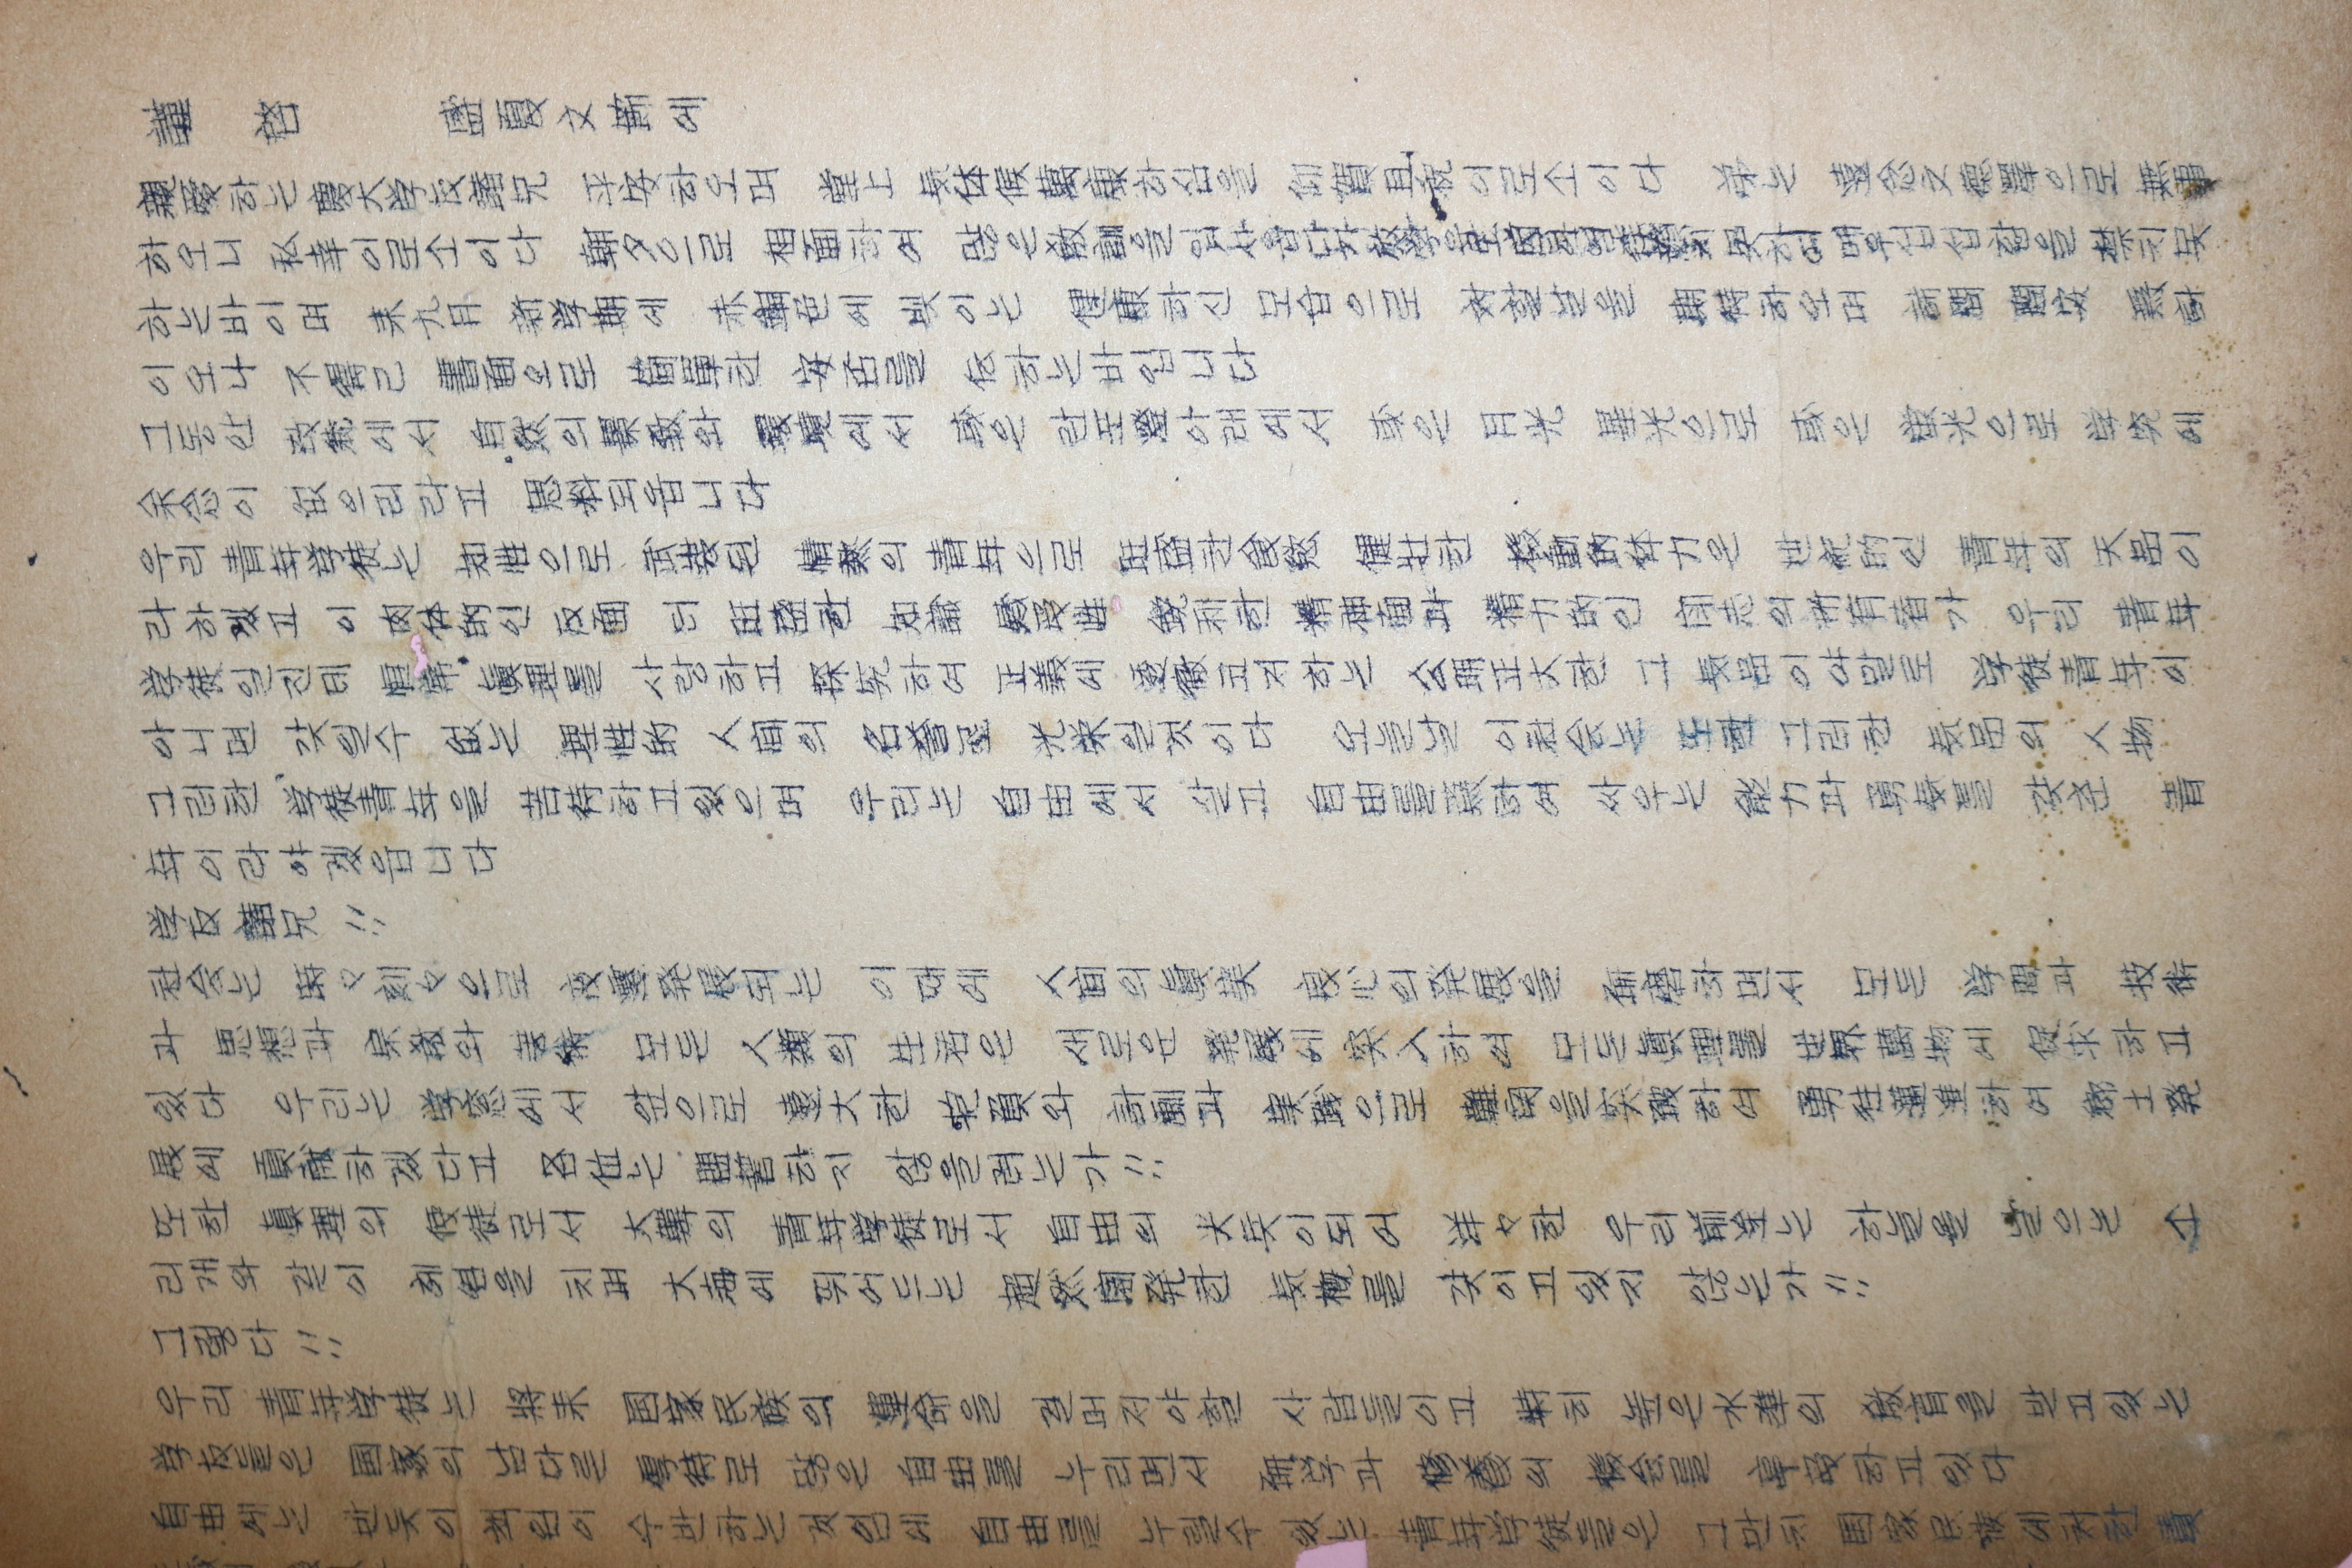 謹啓 盛夏文節에
親愛하는慶大学友諸兄 平安하오며 堂上 気体候萬康하심을 仰賀且祝이로소이다 弟는 遠念之德澤으로無事
하오니 私幸이로소이다 朝夕으로 相面하여 많은敎訓을입사옵다가放学으로因하여 못하여매우섭섭함을禁치못
하는바이며 来九月 新学期에 赤銅色에 빛이는 健康하신 모습으로 対할날을 期待하오며 問安
이오나 不得已 書面으로 簡單한 安否를 伝하는바입니다
그동안 故鄕에서 自然의景致와 環境에서 或은 란포燈아래에서 或은 月光 星光으로 或은 螢光으로 学究에
余念이 없으리라고 思料되옵니다
우리 青年学徒는 知性으로 武裝된 情熱의青年으로 旺盛한食慾 健壮한 機動的体力은 世紀的인 青年의天品이
라하겠고 이肉体的인 反面 더 旺盛한 知識 感受性 鋭利한精神面과 精力的인 闘志의所有者가 우리 青年
学徒일진데 恒常眞理를 사랑하고探究하여 正義에 透徹코저하는 公明正大한 그気品이야말로 学徒青年이
아니면 갖일수 없는 理性的 人間의 名譽로 光栄일것이다 오늘날 이社会는 또한그러한 気品의 人物
그러한 学徒青年을 苦待하고있으며 우리는 自由에서 살고 自由를爲하여 싸우는能力과勇気를 갖춘 青
年이라야겠읍니다
学友諸兄!!
社会는 時々刻々으로 変遷発展되는 이때에 人間의眞実 良心의発展을 硏磨하면서 모든 学問과 技術
과 思想과 宗敎와 芸術 모든 人類의 生活은 새로운 発展에 突入하여 모든眞理를 世界萬物에 促求하고
있다 우리는 学窓에서 앞으로 遠大한 抱負와 計劃과 実践으로 難関을突破하여 勇往邁進하여 鄕土発
展에 貢献하겠다고 各位는 盟誓하지 않을려는가!!
또한 眞理의 使徒로서 大韓의 青年学徒로서 自由의 犬兵이되어 洋々한 우리前途는 하늘을 날으는 소
리개와 같이 헤염을 치며 大海에 뛰어드는 超然闊発한 気概를 갖이고있지 않는가!!
그렇다!!
우리 青年学徒는 將来 国家民族의 運命을 걸머저야할 사람들이고 特히 높은水準의 敎育을 받고있는
学友들은 国家의 남다른 厚待로 많은 自由를 누리면서 硏学과 修養의 機会를 享受하고있다
自由에는 반듯이 책임이 수반하는 것임에 自由를 누릴수 있는 青年学徒들은 그만치 国家民族에처한 責